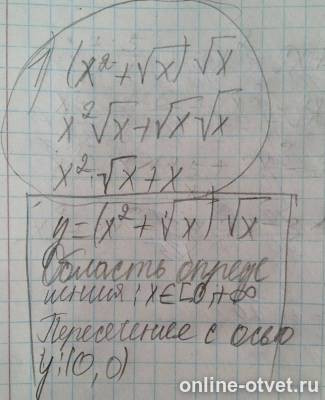 1) (x² + √x) √x
x²√x + √x √x
x²·√x + x
y = (x² + √x) √x
Область опреде
ления: x∈[0,+∞
Пересечение с осью
y:(0,0)
online-otvet.ru